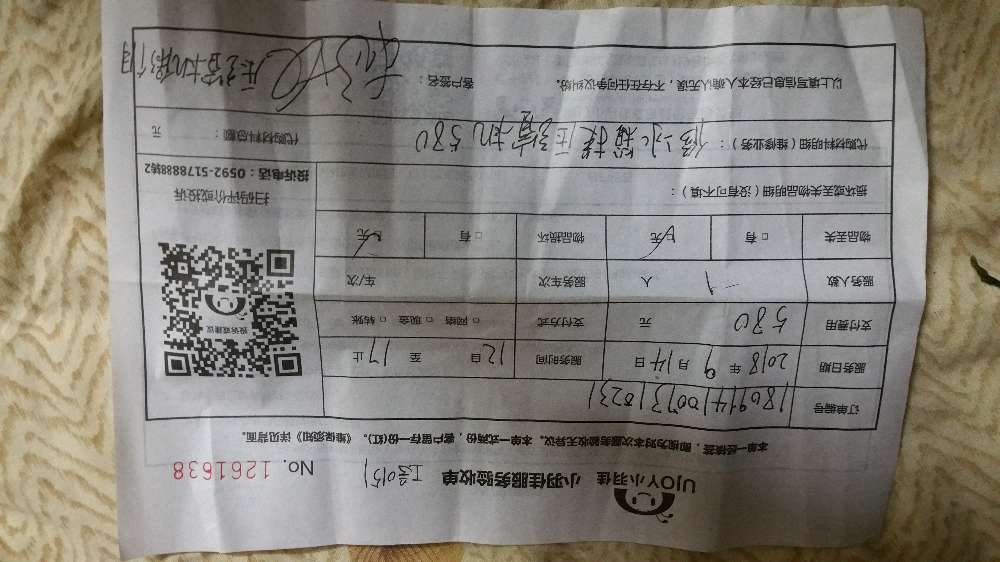 UJOY小羽佳 小羽佳服务验收单 No. 1261638
本单一经换签，即视为对本次服务验收无异议。本单一式两份，客户留存一份(红)。《维保须知》详见背面。
订单编号 180914100731023
服务日期 2018 年 9 月 14 日 服务时间 12 自 至 17 止
支付费用 580 元 支付方式 □ 网络 □ 现金 □ 转账
服务人数 一 人 服务车次 车/次
物品丢失 □ 有 □ 无 物品损坏 □ 有 □ 无
投诉或建议
扫码评价或投诉
投诉电话：0592-5178888转2
损坏或丢失物品明细（没有可不填）：
代购材料明细（维修业务）： 修冰箱换压缩机580
代购材料总额： 元
以上填写信息已经本人确认无误，不存在任何争议纠纷。 客户签名：